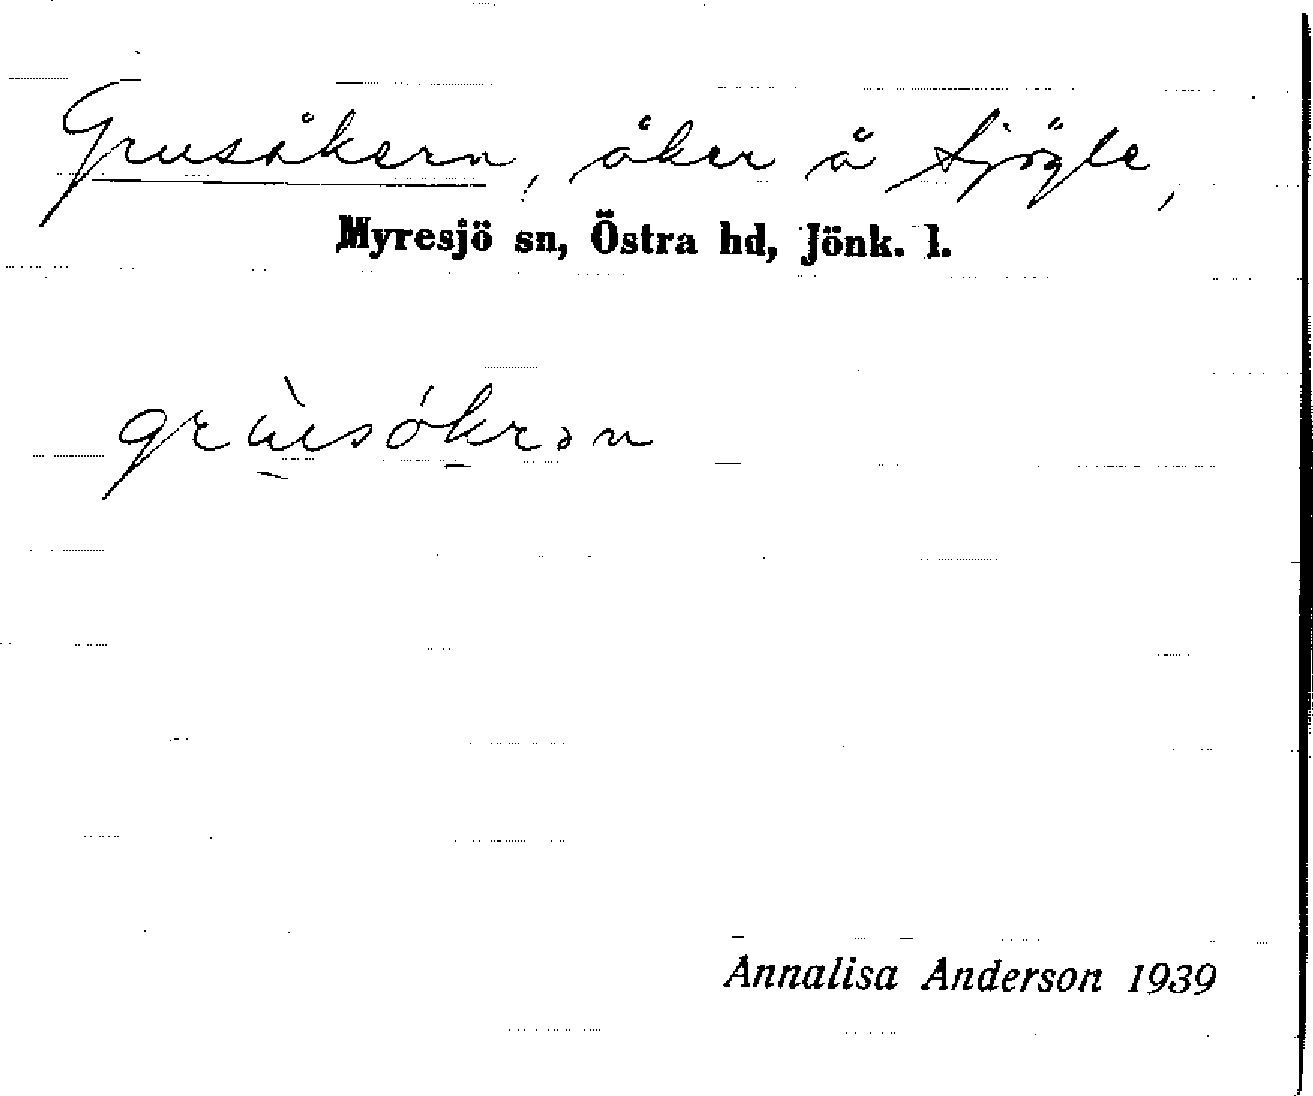 Grusåkern, åker å Sjögle,
Myresjö sn, Östra hd, Jönk. l.
Annalisa Anderson 1939